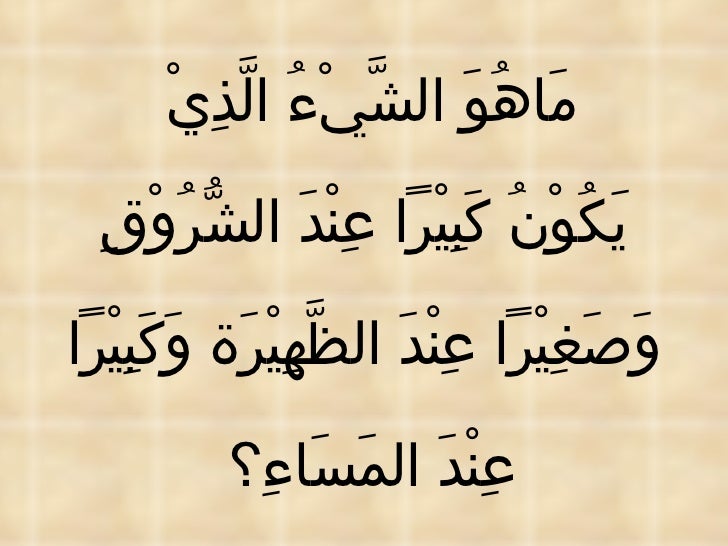 مَاهُوَ الشَّيْءُ الَّذِيْ
يَكُوْنُ كَبِيْرًا عِنْدَ الشُّرُوْقِ
وَصَغِيْرًا عِنْدَ الظَّهِيْرَة وَكَبِيْرًا
عِنْدَ المَسَاءِ؟